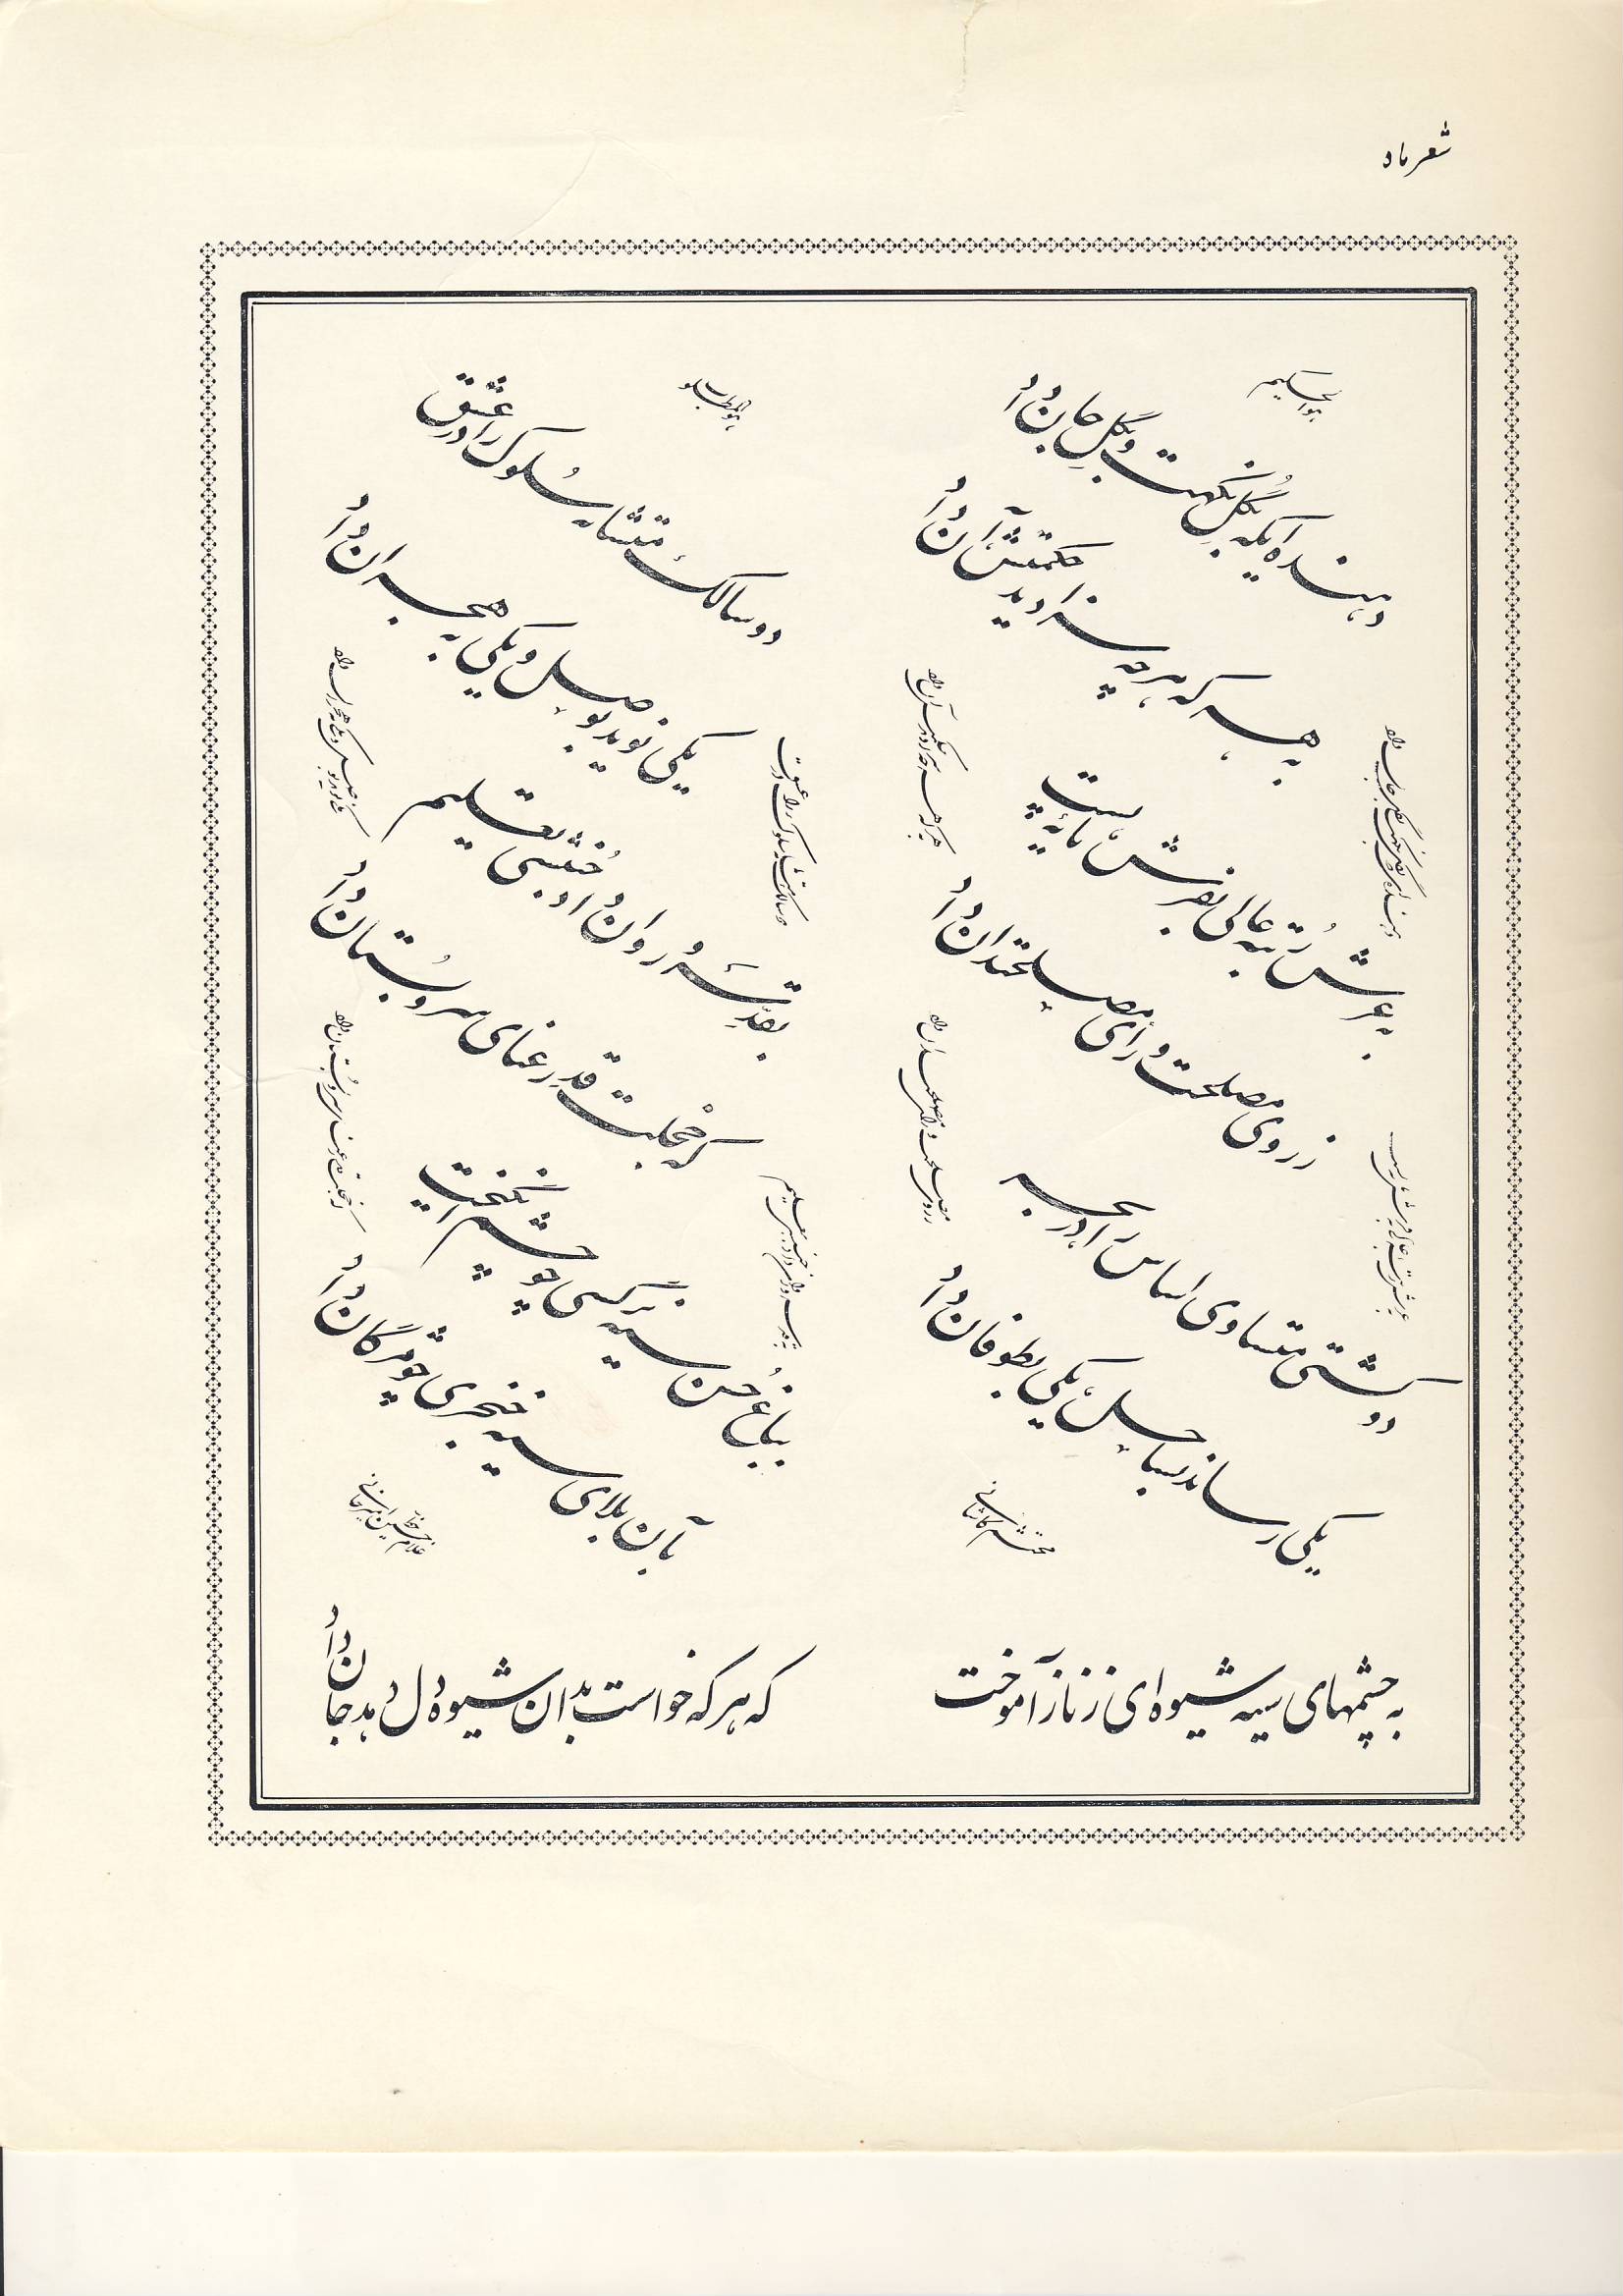 شعر داد
هوالحکیم
دهنده‌ای که به گل نکهت و به گل جان داد
به هر که هرچه سزا دید حکمتش آن داد
به عرش رتبه عالی به فرش پایه پست
ز روی مصلحت و رای مصلحت‌دان داد
دو کشتی متساوی اساس را در بحر
یکی رساند به ساحل یکی به طوفان داد
محتشم کاشانی
دو سالک متشابه سلوک را در عشق
یکی نوید به وصل و یکی به هجران داد
به قد سرو روان داد جنبشی تعلیم
کز خجلت قد رعنای سرو بستان داد
به باغ حسن سیه نرگسی چو چشم انگیخت
به آن بلای سیه خنجری چو مژگان داد
غلامحسین امیرخانی
به چشمهای سیه شیوه‌ای ز ناز آموخت
که هر که خواست بدان شیوه دل دهد جان داد